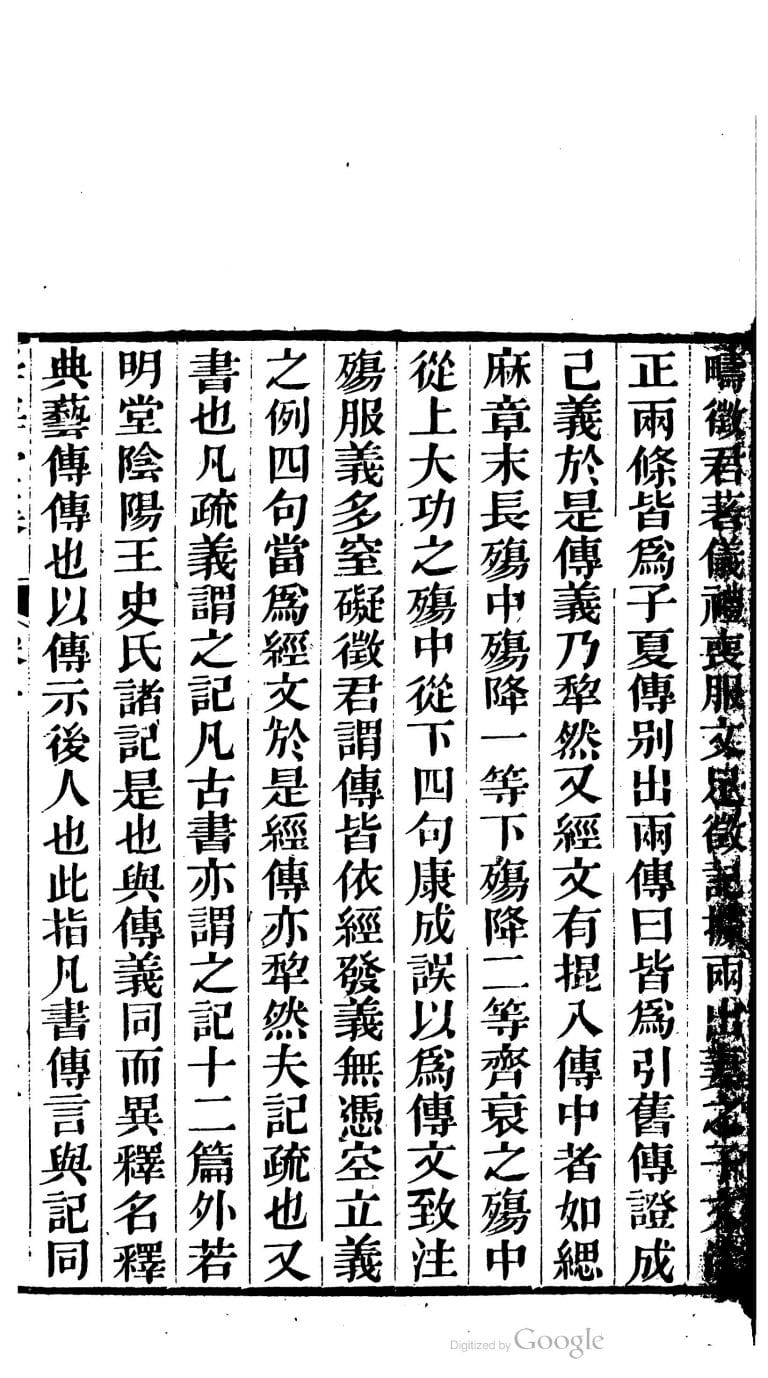 疇徵君著儀禮喪服文足徵記據兩出妻之子
正兩條皆爲子夏傳别出兩傳曰皆爲引舊傳證成
己義於是傳義乃犂然又經文有掍入傳中者如緦
麻章末長殤中殤降一等下殤降二等齊衰之殤中
從上大功之殤中從下四句康成誤以爲傳文致注
殤服義多窒礙徵君謂傳皆依經發義無憑空立義
之例四句當爲經文於是經傳亦犂然夫記疏也又
書也凡疏義謂之記凡古書亦謂之記十二篇外若
明堂陰陽王史氏諸記是也與傳義同而異釋名釋
典藝傳傳也以傳示後人也此指凡書傳言與記同
Digitized by Google